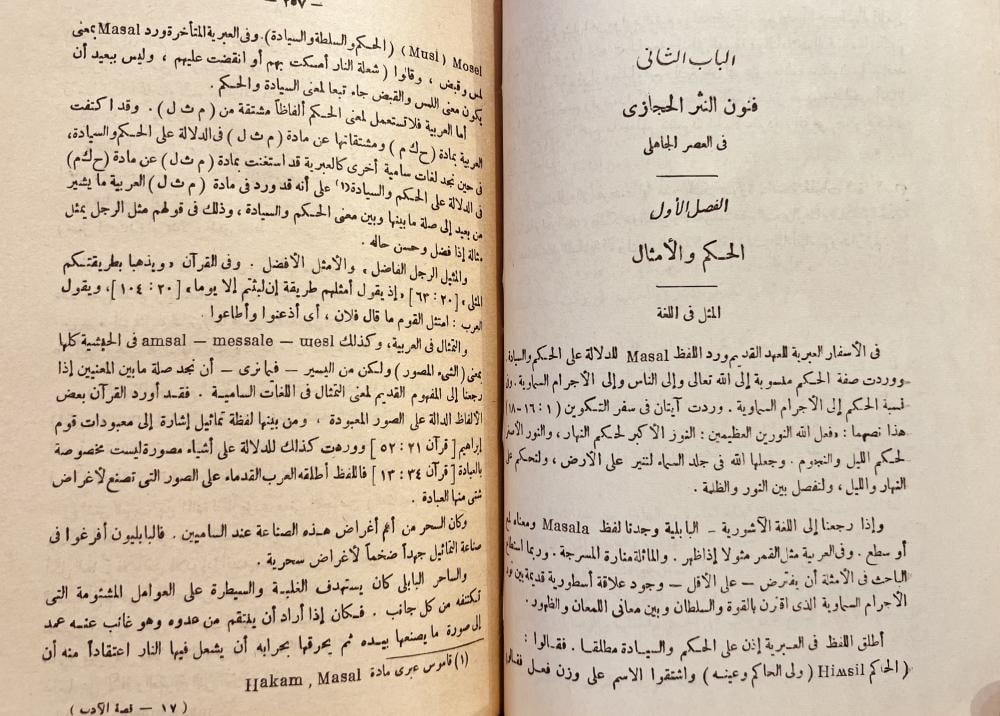 الباب الثانى
فنون النثر الحجازى
فى العصر الجاهلى
الفصل الأول
الحكم والأمثال
المثل فى اللغة
فى الأسفار العبرية للعهد القديم ورد اللفظ Masal للدلالة على الحكم والسيادة.
ووردت صفة الحكم منسوبة إلى الله تعالى وإلى الناس وإلى الأجرام السماوية. وفى
نسبة الحكم إلى الأجرام السماوية . وردت آيتان فى سفر التكوين ( ١ : ١٦-١٨)
هذا نصهما : «فعل الله النورين العظيمين : النور الأكبر لحكم النهار، والنور الأصغر
لحكم الليل والنجوم . وجعلها الله فى جلد السماء لتنير على الأرض ، ولتحكم على
النهار والليل ، ولتفصل بين النور والظلمة .
وإذا رجعنا إلى اللغة الآشورية – البابلية وجدنا لفظ Masala ومعناه لمع
أو سطع . وفى العربية مثل القمر مثولا إذاظهر . والماثلة منارة المسرجة . وربما استطاع
الباحث فى الأمثلة أن يفترض – على الأقل – وجود علاقة أسطورية قديمة بين نور
الأجرام السماوية الذى اقترن بالقوة والسلطان وبين معانى اللمعان والظهور .
أطلق اللفظ فى العبرية إذن على الحكم والسيادة مطلقا . فقالوا :
( الحاكم Himsil (ولى الحاكم وعينه ) واشتقوا الاسم على وزن فعل فقالوا
— ٢٥٧ —
Mosel (Musl) (الحكم والسلطة والسيادة). وفى العبرية المتأخرة ورد Masal بمعنى
لمس وقبض ، وقالوا ( شعلة النار أمسكت بهم أو انقضت عليهم ، وليس ببعيد أن
يكون معنى اللمس والقبض جاء تبعا لمعنى السيادة والحكم .
أما العربية فلا تستعمل لمعنى الحكم ألفاظاً مشتقة من ( م ث ل ) . وقد اكتفت
العربية بمادة (ح ك م ) ومشتقاتها عن مادة ( م ث ل ) فى الدلالة على الحكم والسيادة،
فى حين نجد لغات سامية أخرى كالعبرية قد استغنت بمادة ( م ث ل ) عن مادة (ح ك م)
فى الدلالة على الحكم والسيادة(١) على أنه قد ورد فى مادة ( م ث ل ) العربية ما يشير
من بعيد إلى صلة ما بينها وبين معنى الحكم والسيادة ، وذلك فى قولهم مثل الرجل يمثل
مثالة إذا فضل وحسن حاله .
والمثيل الرجل الفاضل ، والأمثل الأفضل . وفى القرآن «ويذهبا بطريقتكم
المثلى» [٢٠ : ٦٣] «إذ يقول أمثلهم طريقة إن لبثتم إلا يوما» [٢٠ : ١٠٤]، ويقول
العرب : امتثل القوم ما قال فلان ، أى أذعنوا وأطاعوا .
والتمثال فى العربية، وكذلك mesl – messale – amsal فى الحبشية كلها
بمعنى (الشىء المصور) ولكن من اليسير – فيما نرى – أن نجد صلة ما بين المعنيين إذا
رجعنا إلى المفهوم القديم لمعنى التمثال فى اللغات السامية . فقد أورد القرآن بعض
الألفاظ الدالة على الصور المعبودة ، ومن بينها لفظة تماثيل إشارة إلى معبودات قوم
إبراهيم [ قرآن ٢١ : ٥٢ ] ووردت كذلك للدلالة على أشياء مصورة ليست مخصوصة
بالعبادة [ قرآن ٣٤ : ١٣ ] فاللفظ أطلقه العرب القدماء على الصور التى تصنع لأغراض
شتى منها العبادة .
وكان السحر من أهم أغراض هذه الصناعة عند الساميين . فالبابليون أفرغوا فى
صناعة التماثيل جهداً ضخماً لأغراض سحرية .
والساحر البابلى كان يستهدف الغلبة والسيطرة على العوامل المشئومة التى
تكتنفه من كل جانب . فكان إذا أراد أن ينتقم من عدوه وهو غائب عنه عمد
إلى صورة ما يصنعها بيده ثم يحرقها بحرابه أن يشعل فيها النار اعتقاداً منه أن
(١) قاموس عبرى مادة Hakam , Masal
( ١٧ — قصة الأدب )